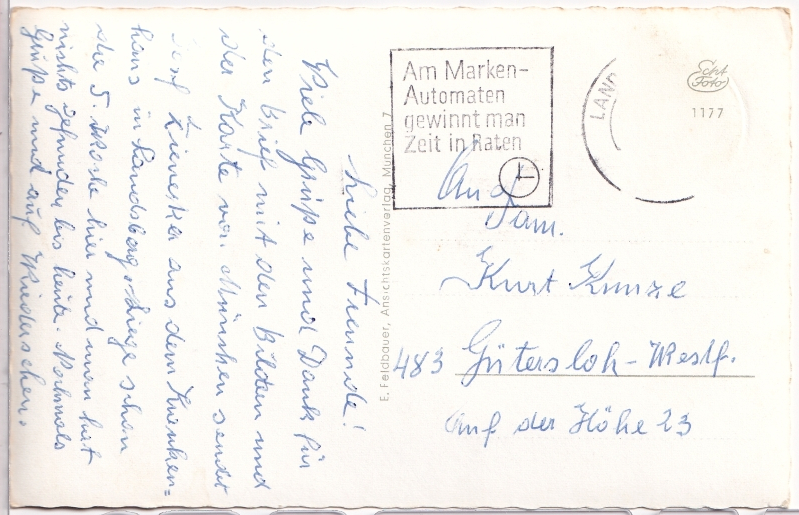 Liebe Freunde!
Viele Grüße und Dank für
den Brief mit den Bildern und
der Karte von München sendet
aus dem Kranken=
haus in Landsberg. Liege schon
die 5. Woche hier und man hat
nichts gefunden bis heute. Nochmals
Grüße und auf Wiedersehen.
E. Feldbauer, Ansichtskartenverlag, München 7
Am Marken-
Automaten
gewinnt man
Zeit in Raten
LAND
Echt
Foto
1177
An
Fam.
Kurt Kunze
483 Gütersloh-Westf.
Auf der Höhe 23